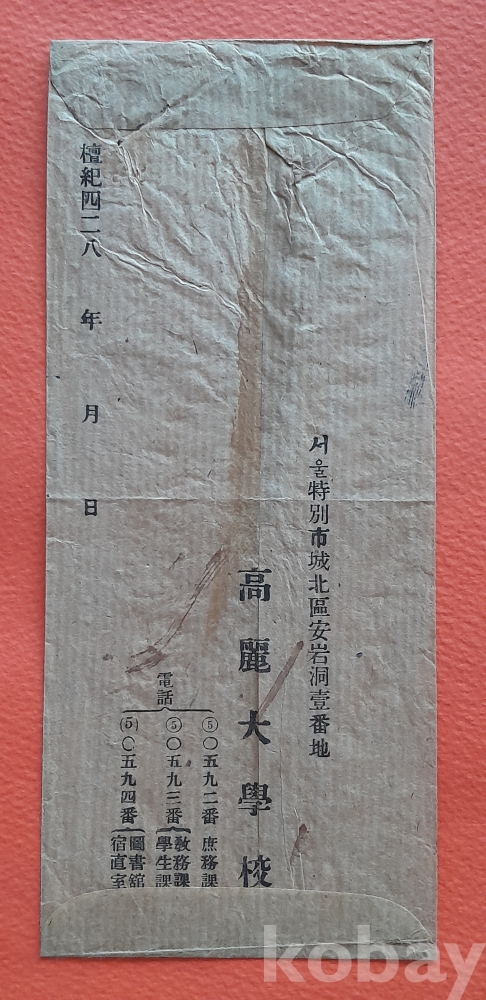 서울特別市城北區安岩洞壹番地
高麗大學校
電話
⑤〇五九二番 庶務課
⑤〇五九三番 敎務課 學生課
⑤〇五九四番 圖書館 宿直室
檀紀四二八 年 月 日
kobay